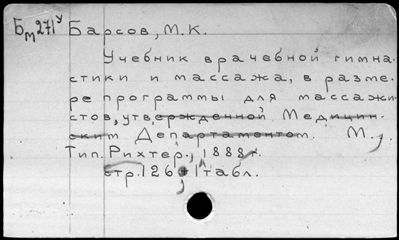 Бм271у Барсов, М.К.
Учебник врачебной гимна-
стики и массажа, в разме-
ре программы для массажи-
стов, утвержденной Медицин-
ским Департаментом. М.,
Тип. Рихтер, 1888.
стр. 126, 1 табл.